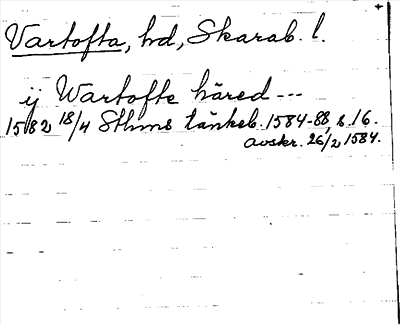 Vartofta, hd, Skarab. l.
ij Wartofte häred ---
1582 18/4 Sthms tänkeb. 1584-88, s. 16.
avskr. 26/2 1584.